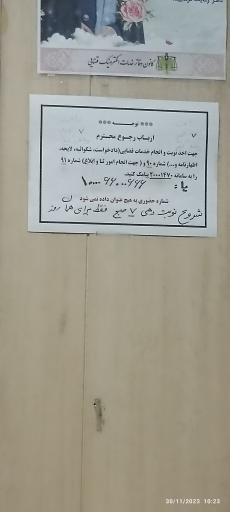 کانون دفاتر خدمات الکترونیک قضایی
*** توجه ***
ارباب رجوع محترم
جهت اخذ نوبت و انجام خدمات قضایی (دادخواست، شکوائیه، لایحه،
اظهارنامه و...) شماره ۹۰ و (جهت انجام امور ثنا و ابلاغ) شماره ۹۱
را به سامانه ۲۰۰۰۱۴۷۰ پیامک کنید.
یا:
شماره حضوری به هیچ عنوان داده نمی شود
شروع نوبت دهی ۷ صبح فقط برای همان روز
30/11/2023 10:23